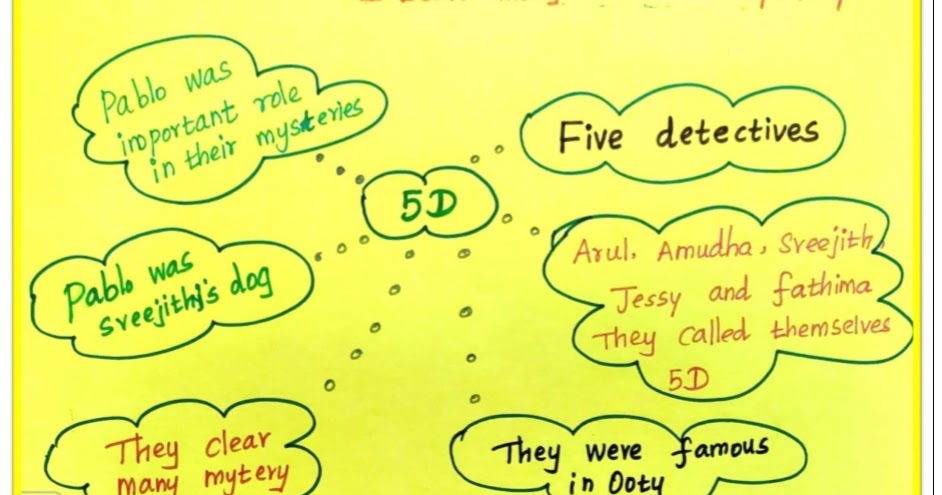 Pablo was
important role
in their mysteries
Five detectives
5D
Arul, Amudha, Sreejith,
Jessy and fathima
They called themselves
5D
Pablo was
Sreejithj's dog
They clear
many mytery
They were famous
in Ooty